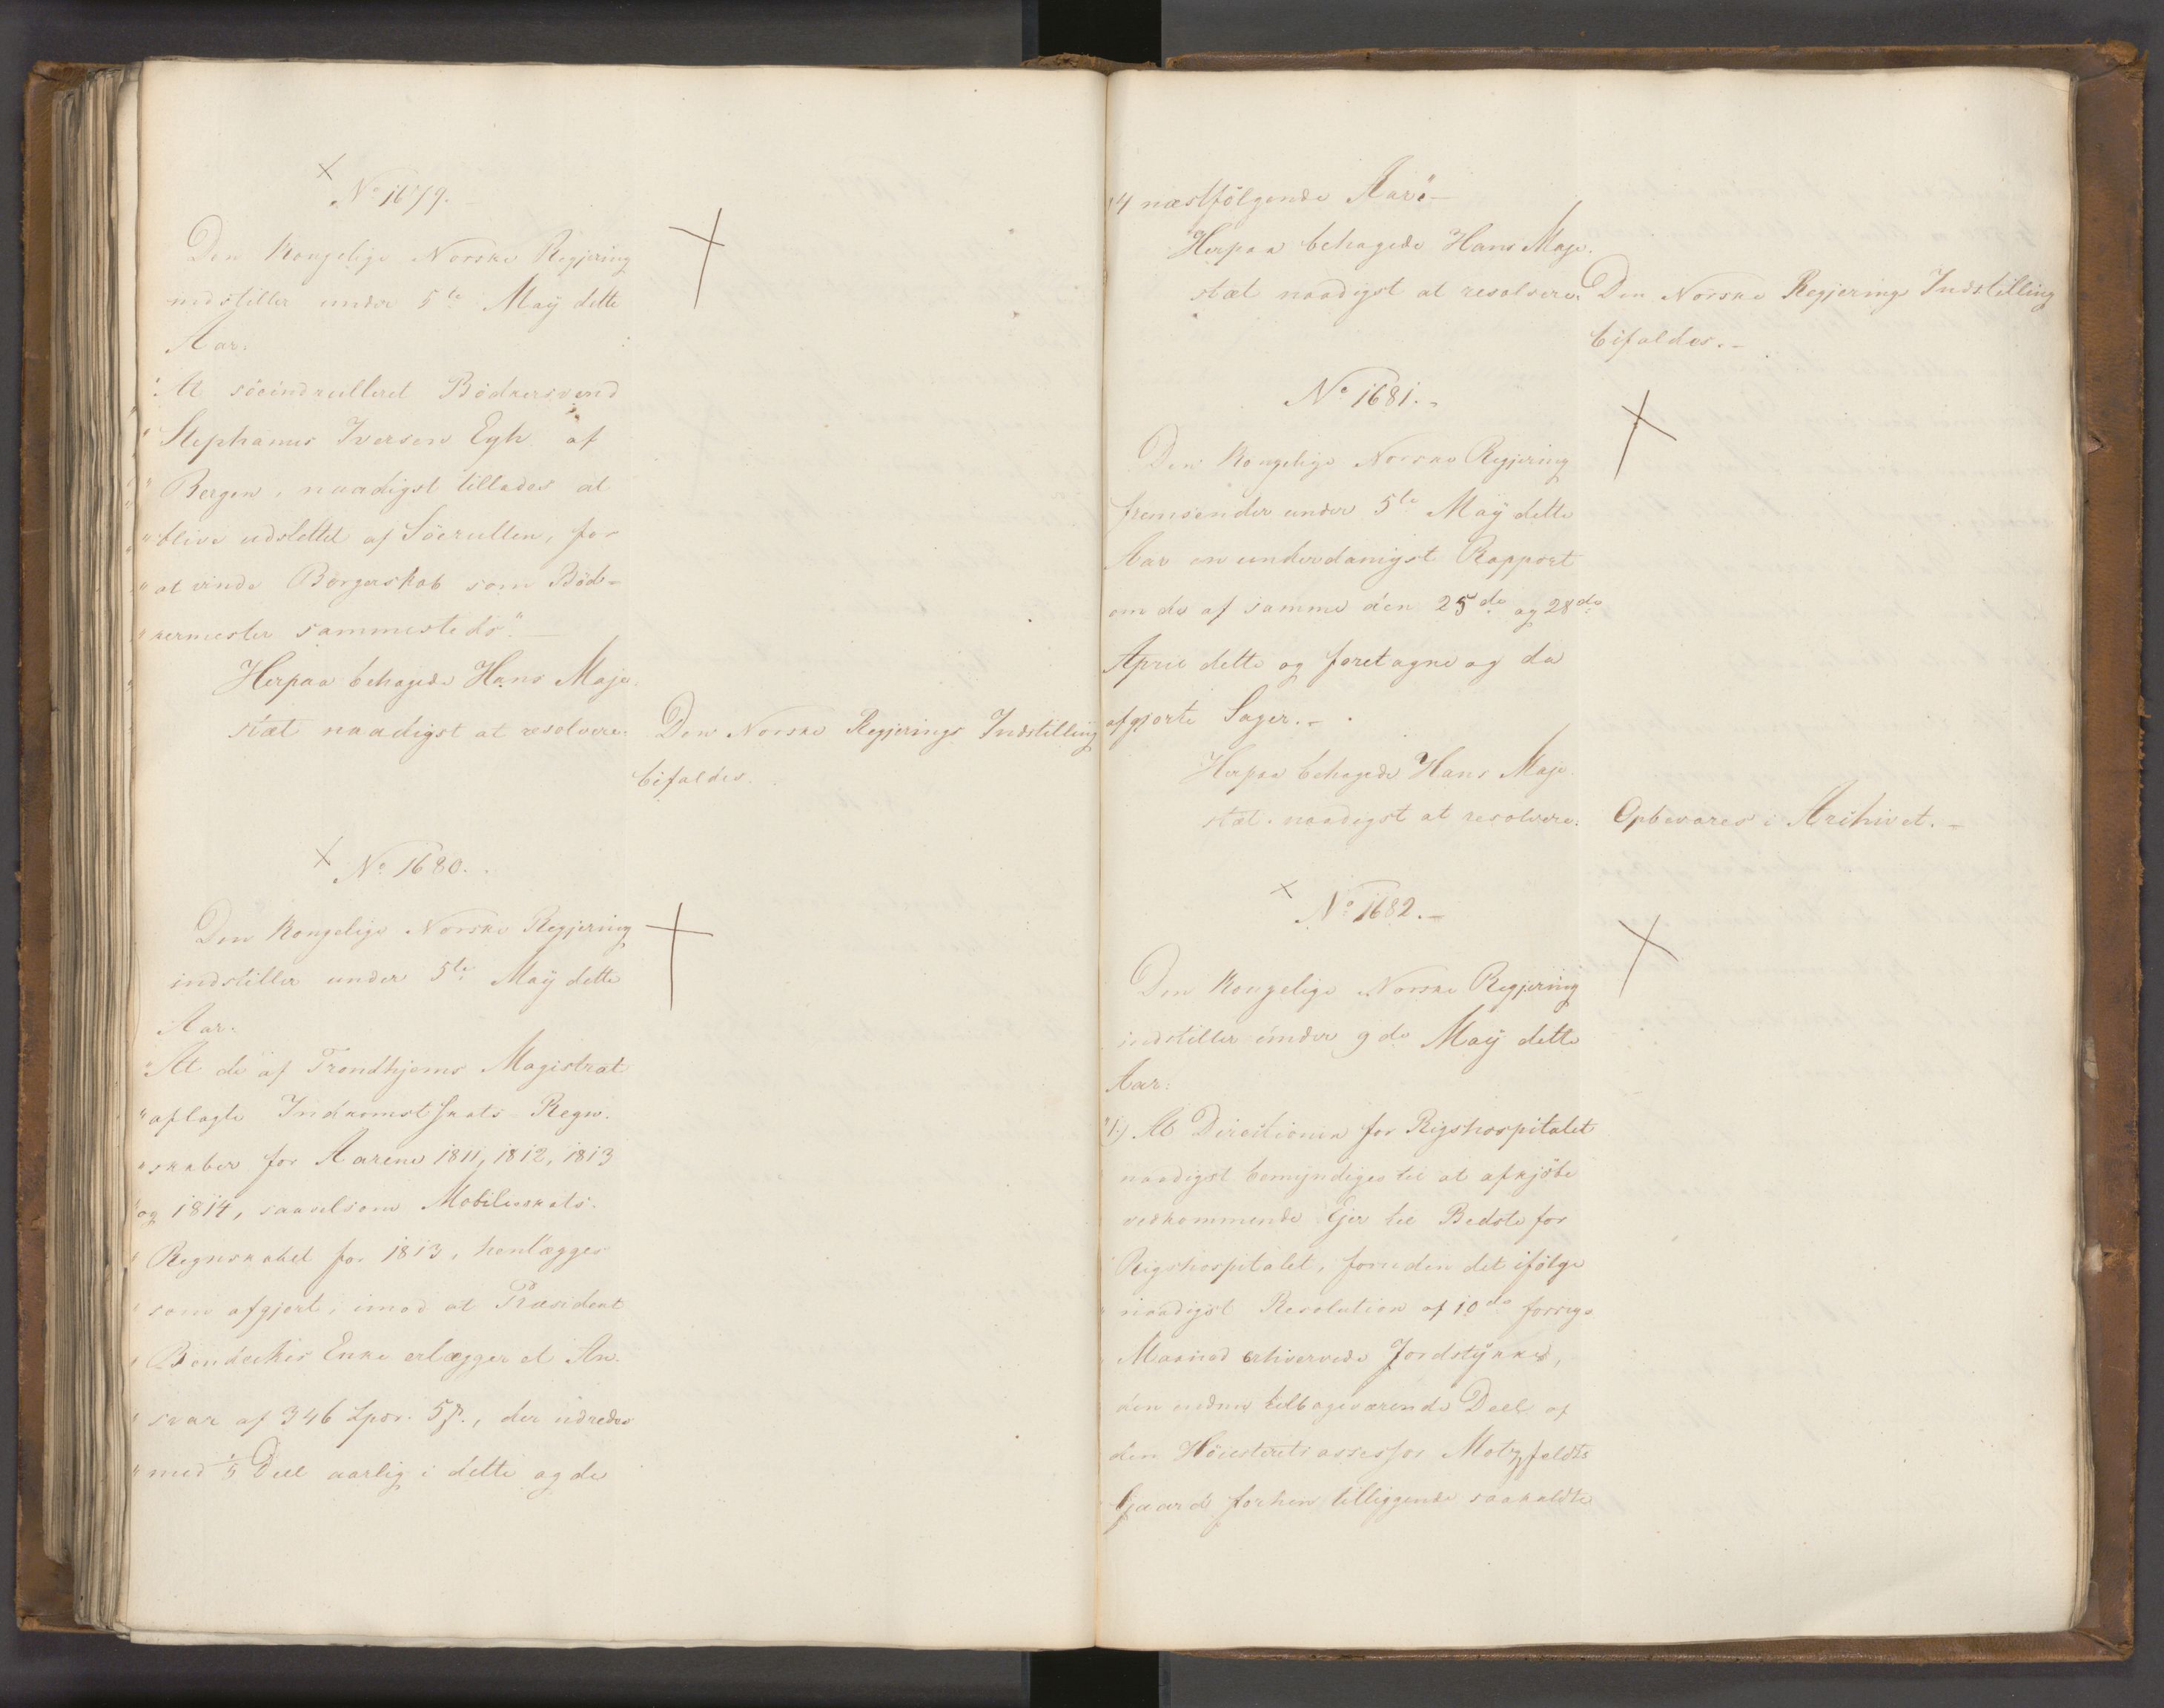 No 1679.
Den Kongelige Norske Regjering
indstiller under 5te May dette
Aar:
"At söeindrulleret Bödkersvend
"Stephanus Iversen Egh af
"Bergen, naadigst tillades at
"blive udslettet af Söerullen, for
"at vinde Borgerskab som Böd-
"kermester sammesteds".-
Herpaa behagede Hans Maje-
stæt naadigst at resolvere:
Den Norske Regjerings Indstilling
bifaldes.
No 1680.
Den Kongelige Norske Regjering
indstiller under 5te May dette
Aar:
"At de af Trondhjems Magistrat
"aflagte Indkomstskats Regn-
"skaber for Aarene 1811, 1812, 1813
"og 1814, saavelsom Mobilieskats-
"Regnskabet for 1813, henlægges
"som afgjort, imod at Præsident
"Enke erlægger et An-
"svar af 346 Spdr. 5 ſ., der udredes
"med 1/5 Deel aarlig i dette og de
"4 næstfölgende Aar".-
Herpaa behagede Hans Maje-
stæt naadigst at resolvere:
Den Norske Regjerings Indstilling
bifaldes.-
No 1681.-
Den Kongelige Norske Regjering
fremsender under 5te May dette
Aar en underdanigst Rapport
om de af samme den 25de og 28de
April dette og foretagne og da
afgjorte Sager.-
Herpaa behagede Hans Maje-
stæt naadigst at resolvere:
Opbevares i Archivet.-
No 1682.-
Den Kongelige Norske Regjering
indstiller under 9de May dette
Aar:
"1) At Directionen for Rigshospitalet
naadigst bemyndiges til at afkjöbe
vedkommende Ejer til Bedste for
Rigshospitalet, foruden det ifölge
naadigst Resolution af 10de forrige
Maaned erhvervede Jordstykke,
den endnu tilbageværende Deel af
den Höiesteretsassessor Motzfeldts
Gaard forhen tilliggende saakaldte